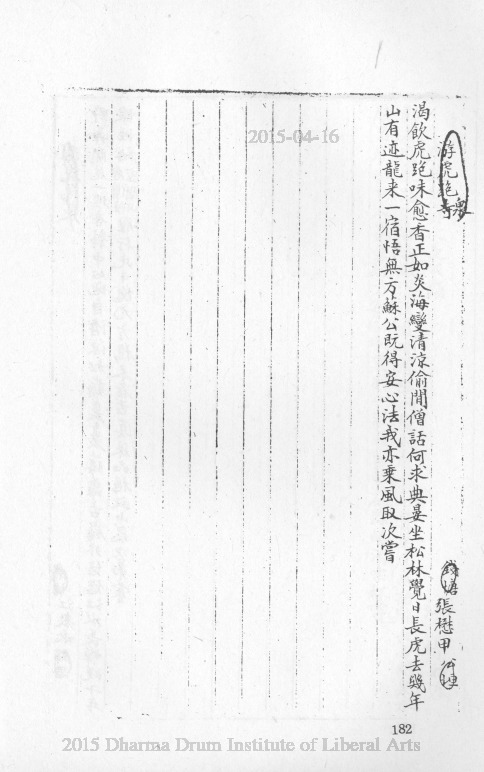 2015-04-16
游虎跑寺
泉
錢塘 張懋甲
渴飲虎跑味愈香正如炎海變清涼偷閒僧話何求典晏坐松林覺日長虎去幾年
山有迹龍来一宿悟無方蘇公既得安心法我亦乗風取次嘗
182
2015 Dharma Drum Institute of Liberal Arts